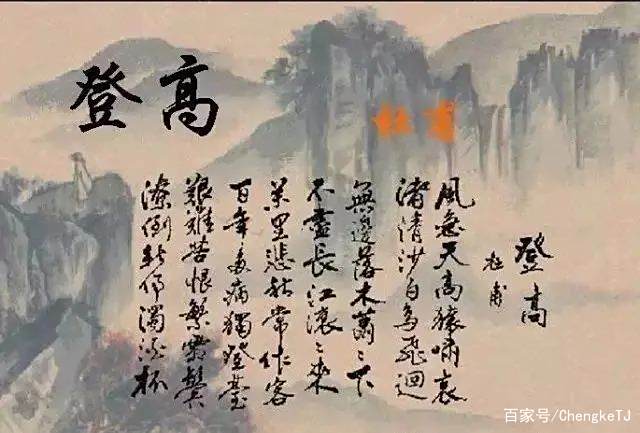 登高
杜甫
登高
杜甫
風急天高猿嘯哀
渚清沙白鳥飛迴
無邊落木蕭〻下
不盡長江滾〻來
萬里悲秋常作客
百年多病獨登臺
艱難苦恨繁霜鬢
潦倒新停濁酒杯
百家号/ChengkeTJ